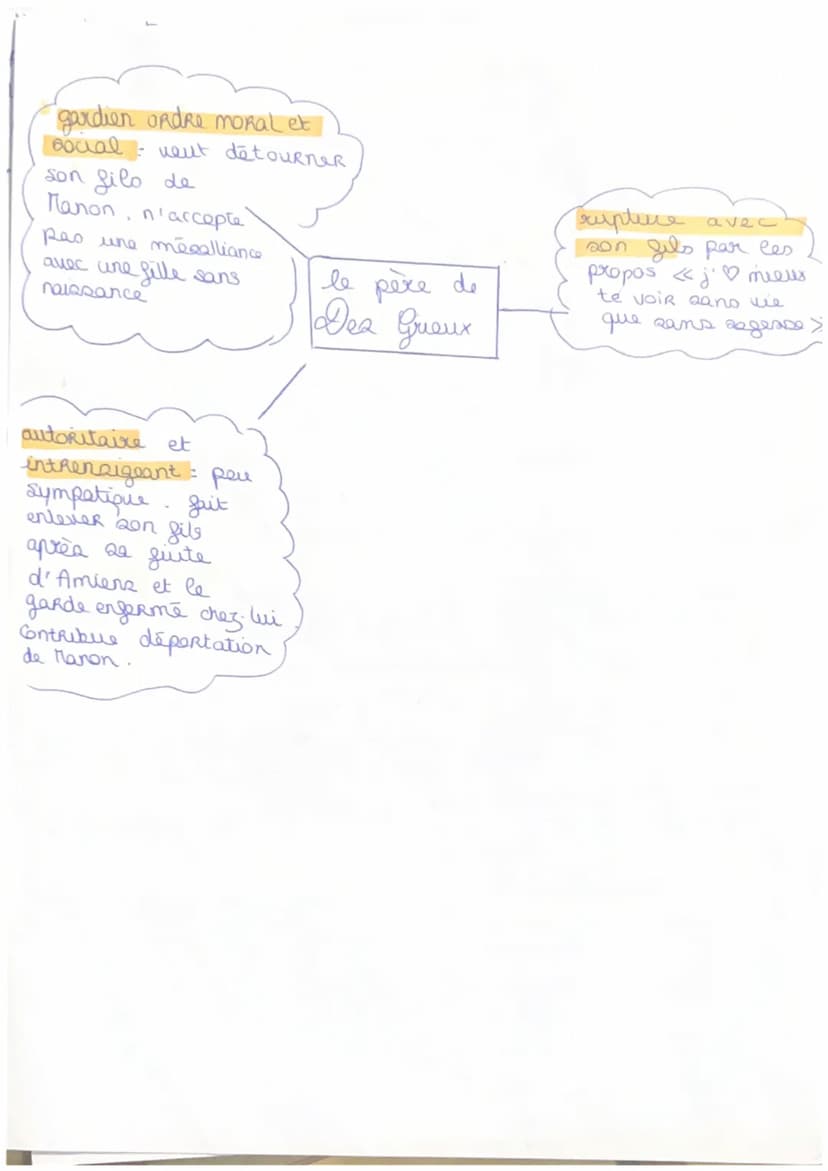 gardien ordre moral et
social = veut détourner
son fils de
Manon, n'accepte
pas une mésalliance
avec une fille sans
naissance
le père de
Des Grieux
rupture avec
son fils par les
propos << j' ♡ mieux
te voir sans vie
que sans sagesse >
autoritaire et
intrensigeant = peu
sympatique. fait
enlever son fils
après sa fuite
d'Amiens et le
garde enfermé chez lui.
Contribue déportation
de Manon.